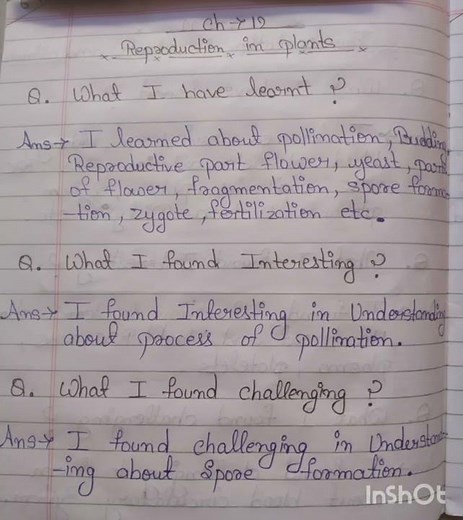 Ch → 12
Reproduction in plants
Q. What I have learnt ?
Ans→ I learned about pollination, Budding,
Reproductive part flower, yeast, part
of flower, fragmentation, spore forma
-tion, zygote, fertilization etc.
Q. What I found Interesting ?
Ans→ I found Interesting in Understanding
about process of pollination.
Q. What I found challenging ?
Ans→ I found challenging in Understand
-ing about Spore formation.
InShOt